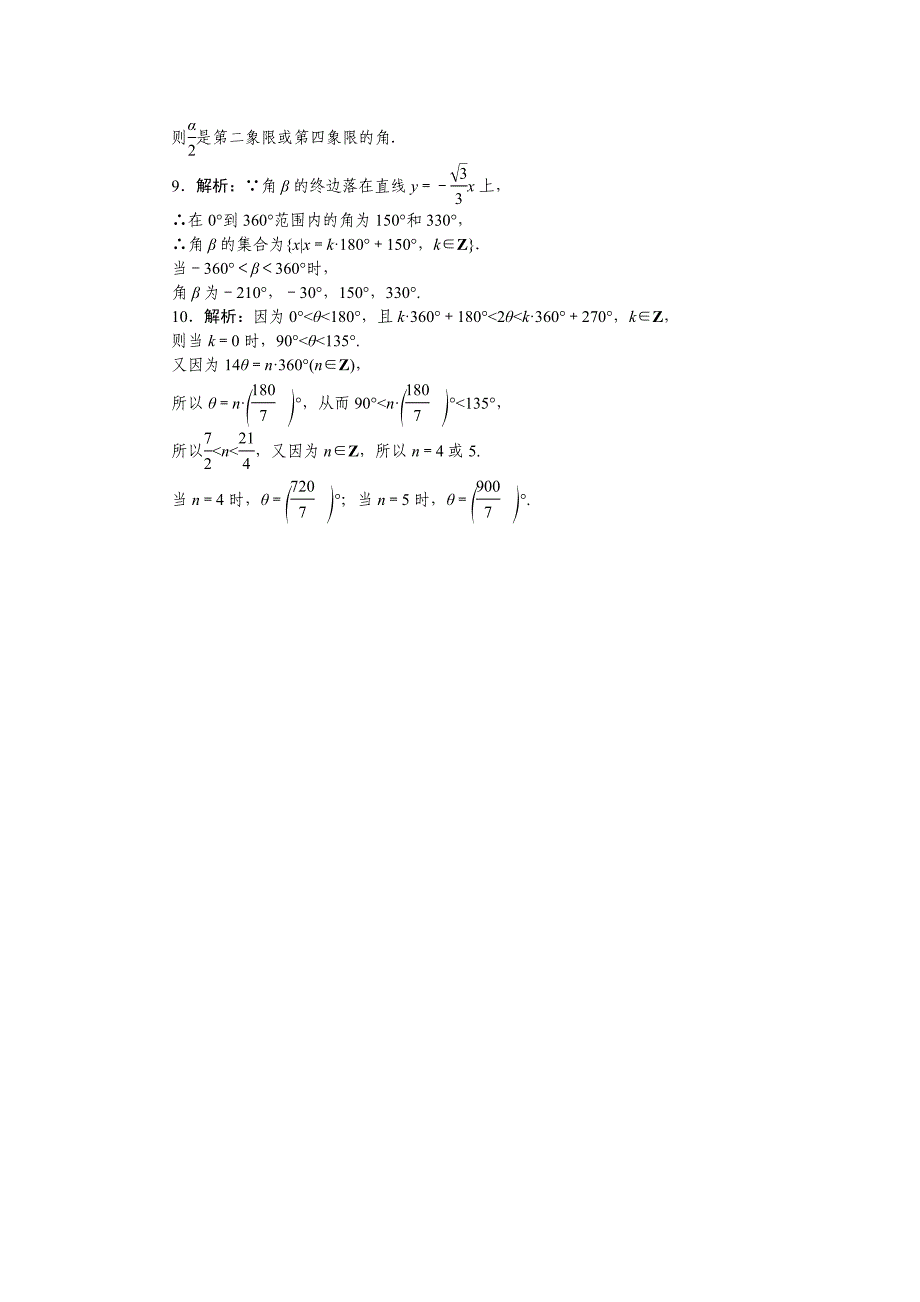 则α/2是第二象限或第四象限的角.
9．解析：∵角 β 的终边落在直线 y＝－√3/3x 上，
∴在 0°到 360°范围内的角为 150°和 330°，
∴角 β 的集合为{x|x＝k·180°＋150°，k∈Z}.
当－360°＜β＜360°时，
角 β 为－210°，－30°，150°，330°.
10．解析：因为 0°<θ<180°，且 k·360°＋180°<2θ<k·360°＋270°，k∈Z，
则当 k＝0 时，90°<θ<135°.
又因为 14θ＝n·360°(n∈Z)，
所以 θ＝n·(180/7)°，从而 90°<n·(180/7)°<135°，
所以7/2<n<21/4，又因为 n∈Z，所以 n＝4 或 5.
当 n＝4 时，θ＝(720/7)°；当 n＝5 时，θ＝(900/7)°.